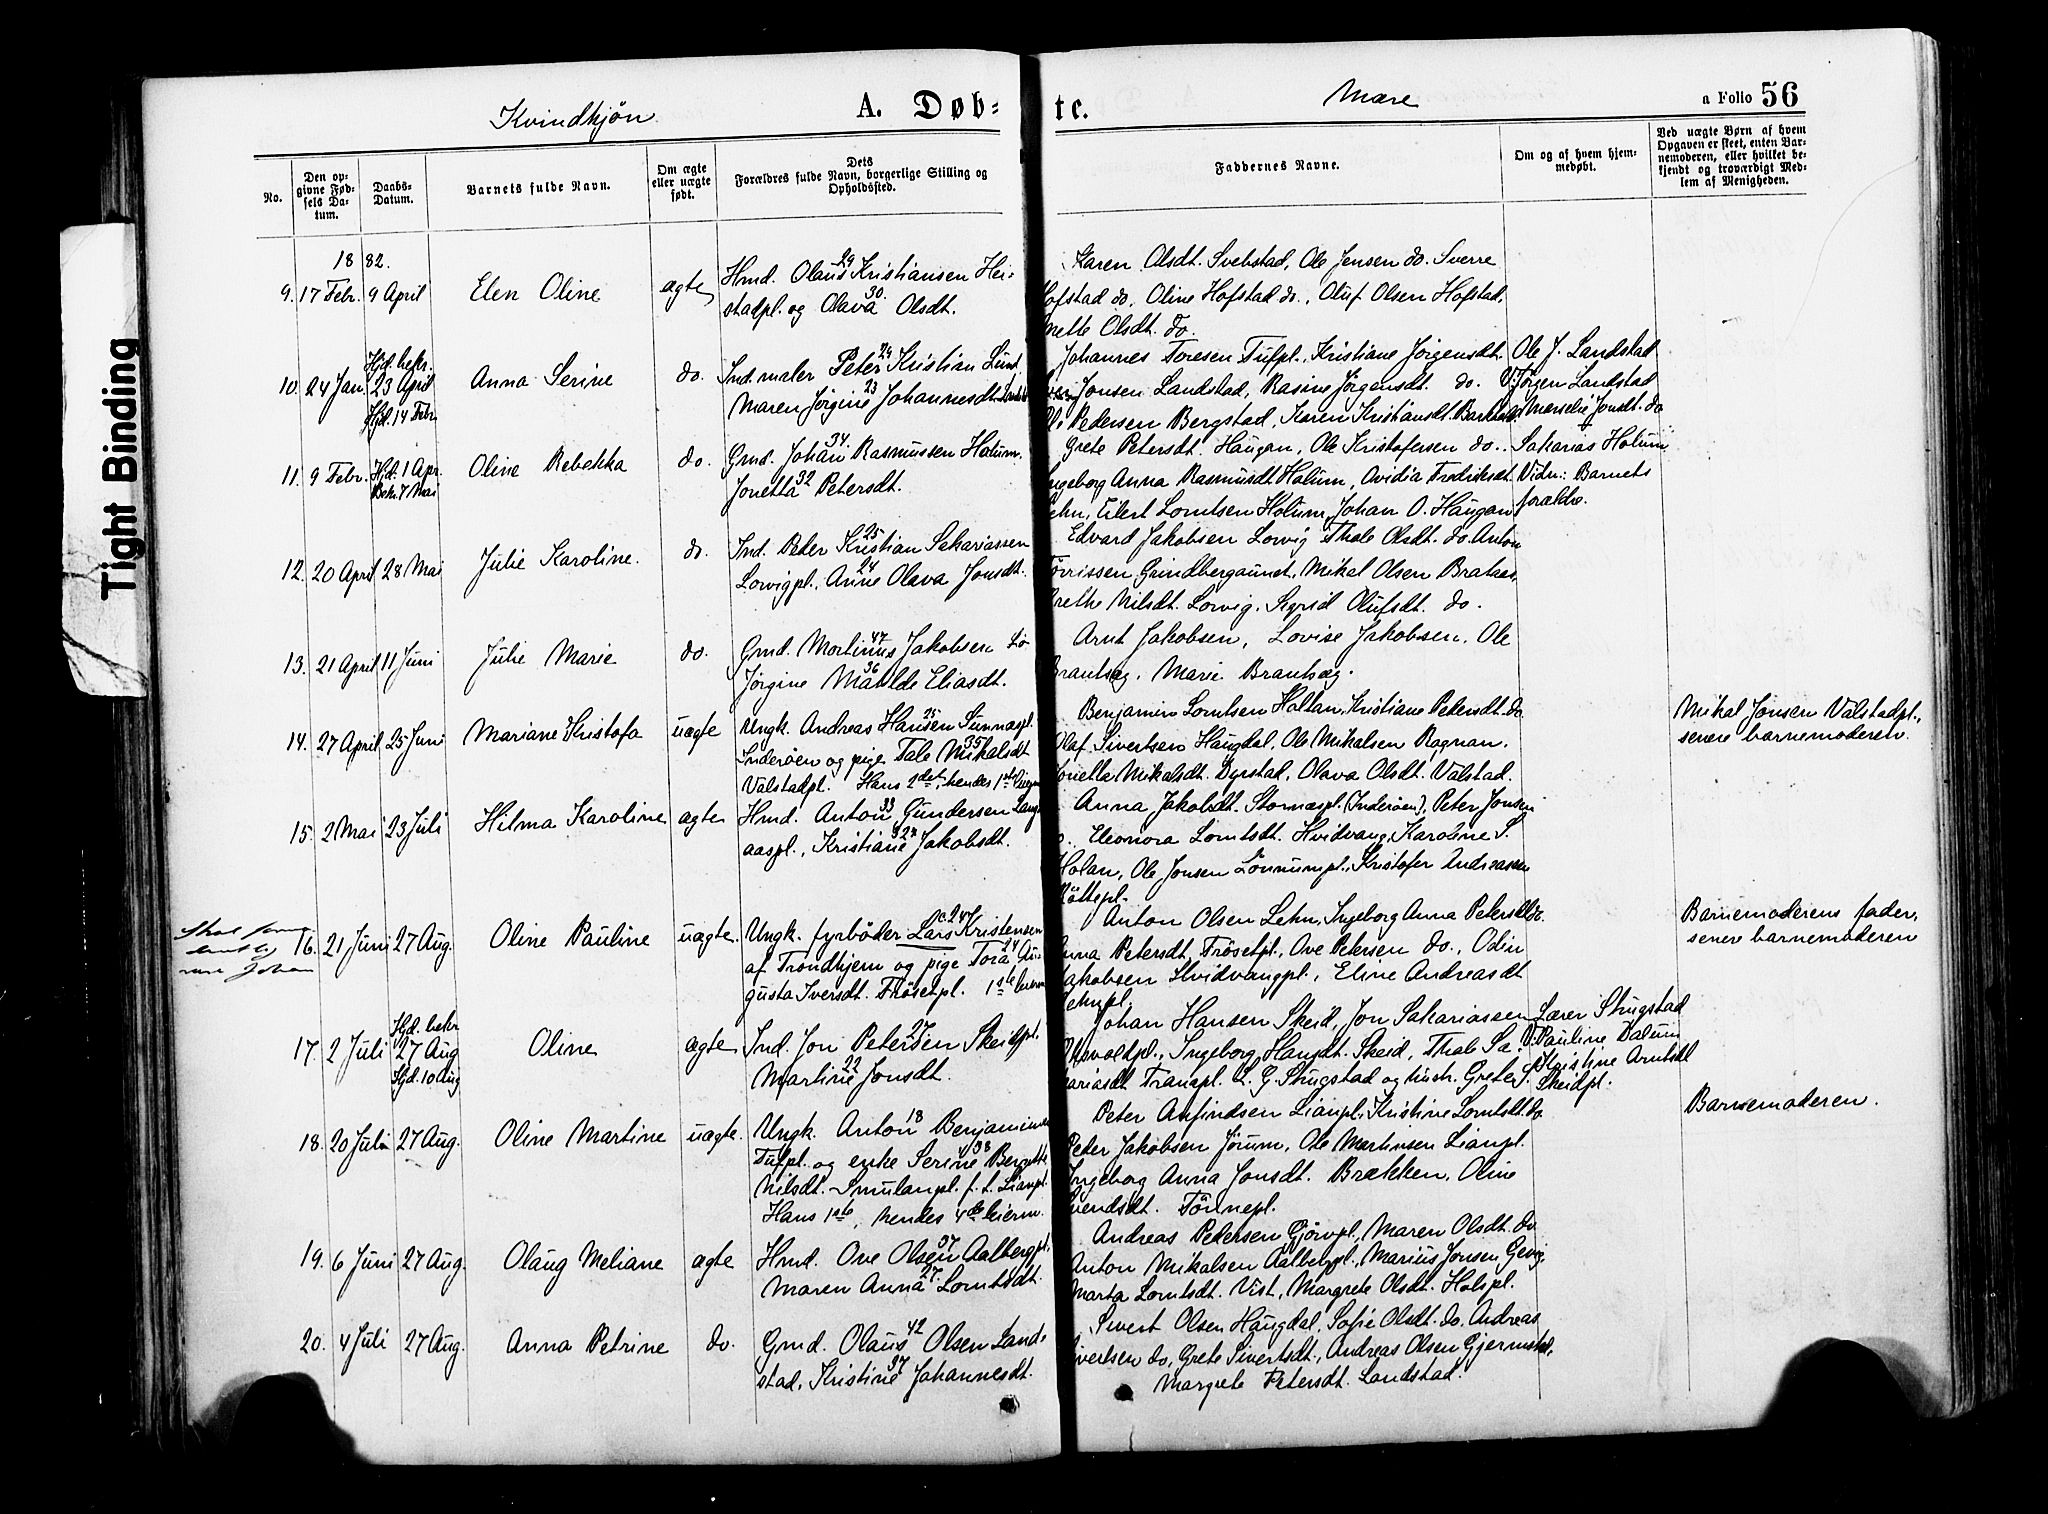 Tight Binding
Kvindkjøn
A. Døb-
te.
Mære
a Folio 56
No.
Den op-
givne Fød-
sels Da-
tum.
Daabs-
Datum.
Barnets fulde Navn.
Om ægte
eller uægte
født.
Dets
Forældres fulde Navn, borgerlige Stilling og
Opholdssted.
Faddernes Navne.
Om og af hvem hjem-
medøbt.
Ved uægte Børn af hvem
Opgaven er skeet, enten Bar-
nemoderen, eller hvilket be-
kjendt og troværdigt Med-
lem af Menigheden.
1882.
9. 17 Febr. 9 April Elen Oline ægte
Hmd. Olaus 29 Kristiansen Hei-
stadpl. og Olava 30 Olsdt.
Karen Olsdt. Svebstad, Ole Jensen do. Sverre
Hofstad do, Oline Hofstad do., Oluf Olsen Hofstad,
nette Olsdt. do.
10. 24 Jan. Hjd. bekr. 23 April Hjd. 14 Febr Anna Serine do.
Ind. maler Peter 29 Kristian Lund,
Maren Jørgine 23 Johannesdt.
Johannes Toresen Tufpl., Kristiane Jørgensdt.
Jonsen Landstad, Rasine Jørgensdt. do.
Pedersen Bergstad, Karen Kristiansdt.
Ole J. Landstad
V: Jørgen Landstad
Marselie Jonsdt. do
11. 9 Febr. Hjd. 1 Apr. Bekr. 7 Mai Oline Rebekka do.
Gmd. Johan 34 Rasmussen Holum.
Jonetta 32 Petersdt.
Grete Petersdt. Haugan, Ole Kristofersen do.
Ingeborg Anna Rasmusdt. Holum, Ovidia Fredriksdt.
Lehn, Eilert Lorntsen Holum, Johan O. Haugan
Sakarias Holum
Vidn: Barnets
forældre.
12. 20 April 28 Mai Julie Karoline. do.
Ind. Peter 25 Kristian Sakariassen
Lorvigpl., Anne 24 Olava Jonsdt.
Edvard Jakobsen Lorvig Thale Olsdt. do. Anton
Tørrissen Grindbergaunet, Mikal Olsen Brataas,
Grethe Nilsdt. Lorvig, Sigrid Olufsdt. do.
13. 21 April 11 Juni Julie Marie do.
Gmd. Martinus 47 Jakobsen Lø
Jørgine 36 Matilde Eliasdt.
Arnt Jakobsen, Lovise Jakobsen, Ole
Brantsæg, Marie Brantsæg.
14. 27 April 25 Juni Mariane Kristofa uægte
Ungk. Andreas 25 Hansen Sunnaspl.
Inderøen og pige Tale 35 Mikalsdt
Valstadpl. Hans 2det, hendes 1ste
Benjamin Lorntsen Holtan, Kristiane Petersdt. do
Olaf Sivertsen Haugdal, Ole Mikalsen Rognan.
Jonetta Mikalsdt. Dyrstad, Olava Olsdt. Valstad.
Mikal Jonsen Valstadpl.,
senere barnemoderen.
15. 2 Mai 23 Juli Hilma Karoline ægte
Hmd. Anton 33 Gundersen Lang-
aaspl., Kristiane Jakobsdt.
Anna Jakobsdt. Stornæspl. (Inderøen), Peter Jonsen
do. Eleonora Lorntsdt. Hvidvang, Karoline S.
Holan, Ole Jonsen Lønnumpl., Kristofer Andreassen
16. 21 Juni 27 Aug. Oline Pauline uægte.
Ungk. fyrbøder Lars 24 Kristensen
af Trondhjem og pige Tora 24 Au-
gusta Iversdt. Frøsetpl. 1ste
Anton Olsen Lehn, Ingeborg Anna Petersdt. do.
Anna Petersdt. Frøsetpl., Ove Petersen do., Odin
Jakobsen Hvidvangpl., Eline Andreasdt
Lehnpl.
Barnemoderens fader,
senere barnemoderen
17. 2 Juli Hjd. bekr 27 Aug Hjd. 10 Aug Oline ægte
Ind. Jon Petersen 27 Skeidpl.
Martine 22 Jonsdt.
Johan Hansen Skeid, Jon Sakariassen
Ingeborg Hansdt. Skeid, Thale Sa-
kariasdt Tranapl. L. G. Strugstad og hustr. Grete S.
Lærer Strugstad
V: Pauline Dalum
Kristine Arntsdt
Skeidpl.
18. 20 Juli 27 Aug. Oline Martine uægte.
Ungk. Anton 18 Benjaminsen
Tufpl. og enke Serine 38 Bergitte
Nilsdt. Smulanpl. f. t. Lianpl.
Hans 1ste, hendes 4de leierm.
Peter Anfindsen Lianpl., Kristine Lorntsdt. do
Peter Jakobsen Jørum, Ole Martinsen Lianpl.
Ingeborg Anna Jonsdt. Brækken, Oline
Svendsdt. Tönnepl.
Barnemoderen.
19. 6 Juni 27 Aug. Olaug Meliane ægte
Hmd. Ove Olsen 37 Aalbergpl.
Maren Anna 27 Lorntsdt.
Andreas Petersen Gjørvpl., Maren Olsdt. do
Anton Mikalsen Aalbergpl., Marius Jonsen Gevig,
Marta Lorntsdt. Vist, Margrete Olsdt. Holspl.
20. 4 Juli 27 Aug. Anna Petrine do.
Gmd. Olaus 42 Olsen Land-
stad, Kristine 37 Johannesdt.
Sivert Olsen Haugdal, Sofie Olsdt. do. Andreas
Sivertsen do, Grete Sivertsdt., Andreas Olsen Gjermstad,
Margrete Petersdt. Landstad.